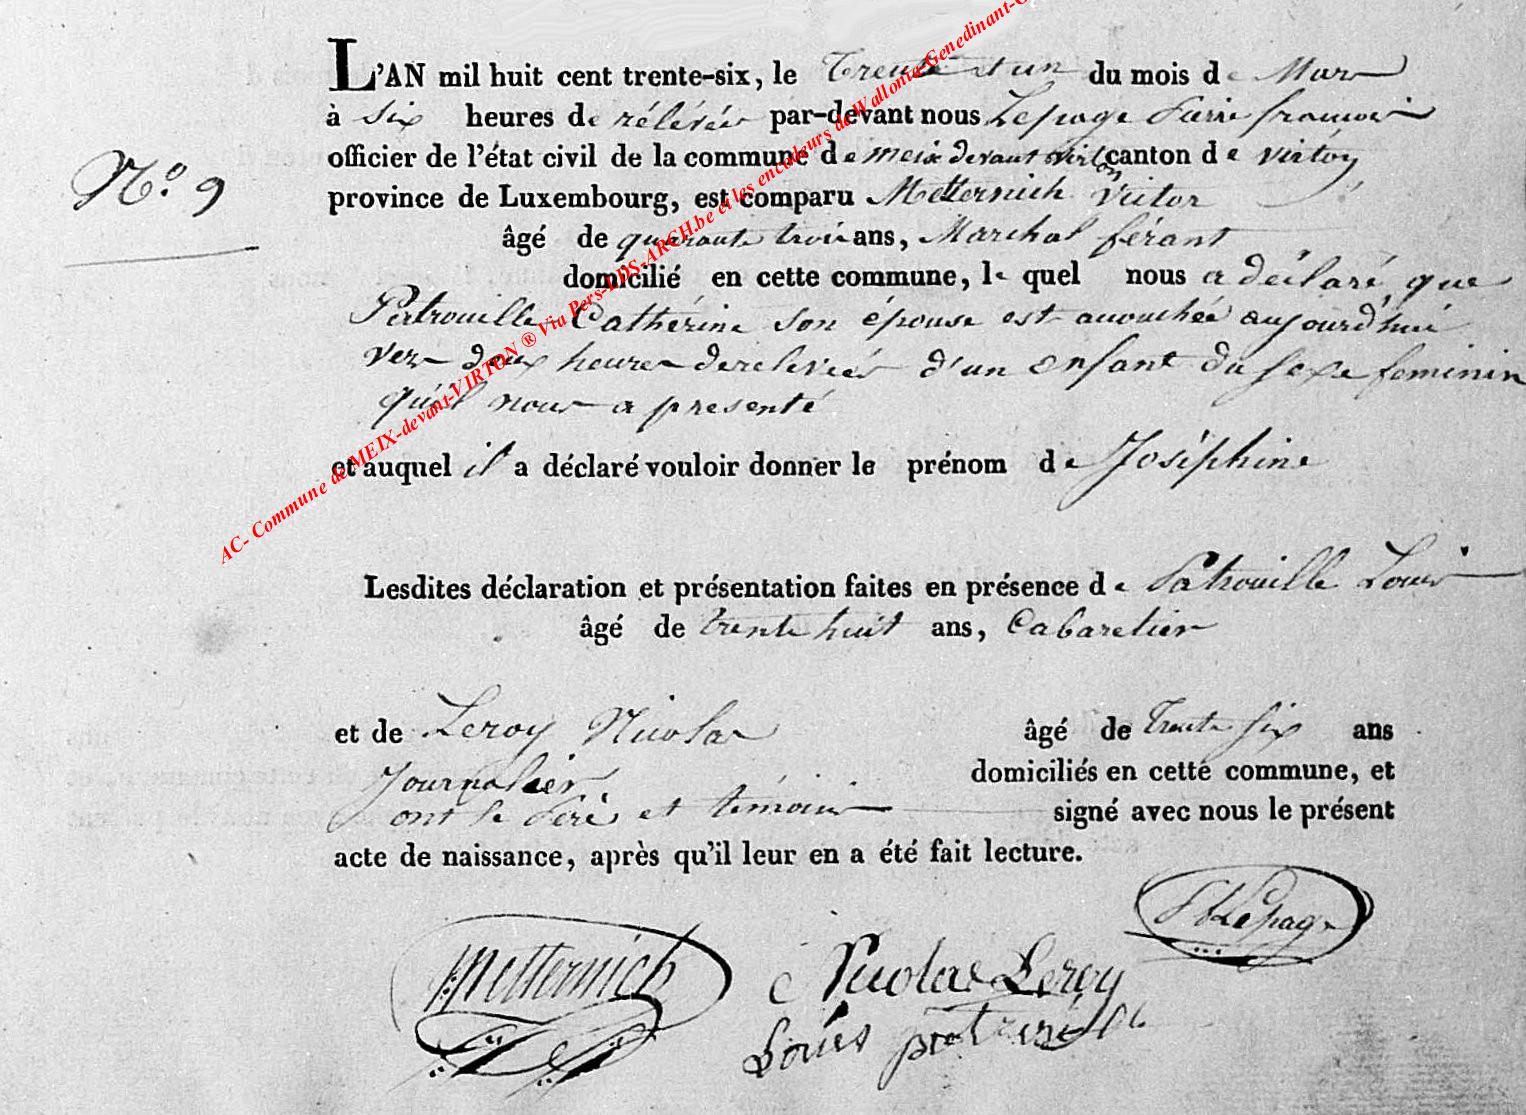 L'AN mil huit cent trente-six, le Trente et un du mois de Mars
à six heures de rélévées par-devant nous Lepage Pierre françois
officier de l'état civil de la commune de meix devant virton canton de virton
province de Luxembourg, est comparu Metternich Victor
N.o 9
âgé de quarante trois ans, Marchal férant
domicilié en cette commune, le quel nous a déclaré que
Patrouille Catherine son épouse est accouchée aujourd'hui
vers deux heures de relevées d'un enfant du sexe feminin
qu'il nous a presenté
et auquel il a déclaré vouloir donner le prénom de Joséphine
Lesdites déclaration et présentation faites en présence de Patrouille Louis
âgé de trente huit ans, Cabaretier
et de Leroy Nicolas âgé de Trente six ans
Journalier domiciliés en cette commune, et
ont le Père et témoins signé avec nous le présent
acte de naissance, après qu'il leur en a été fait lecture.
Lepage
Metternich Nicolas Leroy
Louis
AC- Commune de MEIX-devant-VIRTON ® Via Pers-LDS-ARCH.be et les encodeurs de Wallonia-Genedinant-